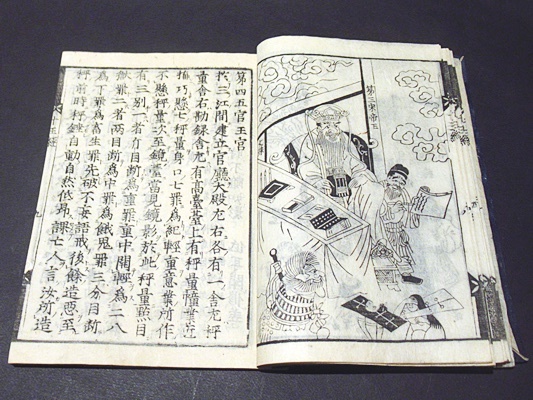 第三宋帝王
第四五官王官
扵三江間建立官廳大殿左右各有一舍左秤
量舍右勘録舍左有高臺臺上有秤量幢業匠
構巧懸七秤量身口七罪為紀輕重意業所作
不懸秤量次至鏡臺當見鏡影於此秤量點目
有三別一者斤目断為重罪重中開輕為二八
獄罪二者兩目断為中罪為餓鬼罪三分目断
為下罪為畜生罪先破不妄語戒後餘造惡至
秤前時秤錘自動自然低昻課亡人言汝所造